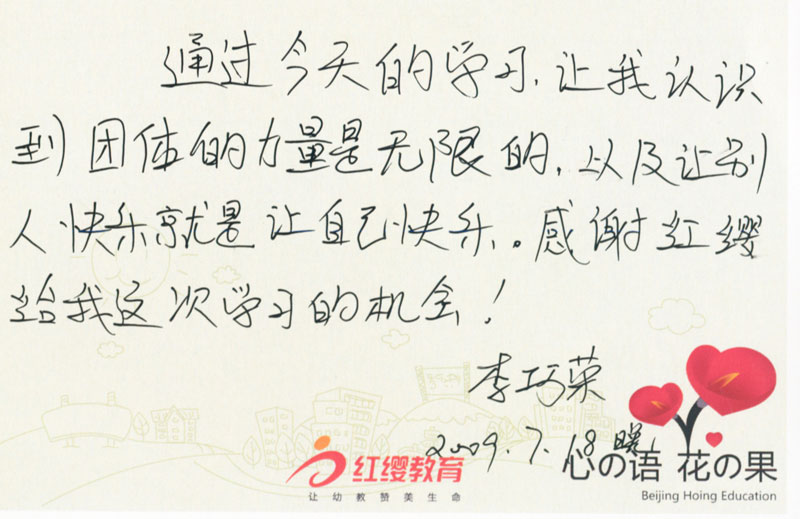 通过今天的学习，让我认识
到团体的力量是无限的，以及让别
人快乐就是让自己快乐。感谢红缨
给我这次学习的机会！
李巧荣
2009.7.18
红缨教育
让幼教赞美生命
心の语 花の果
Beijing Hoing Education